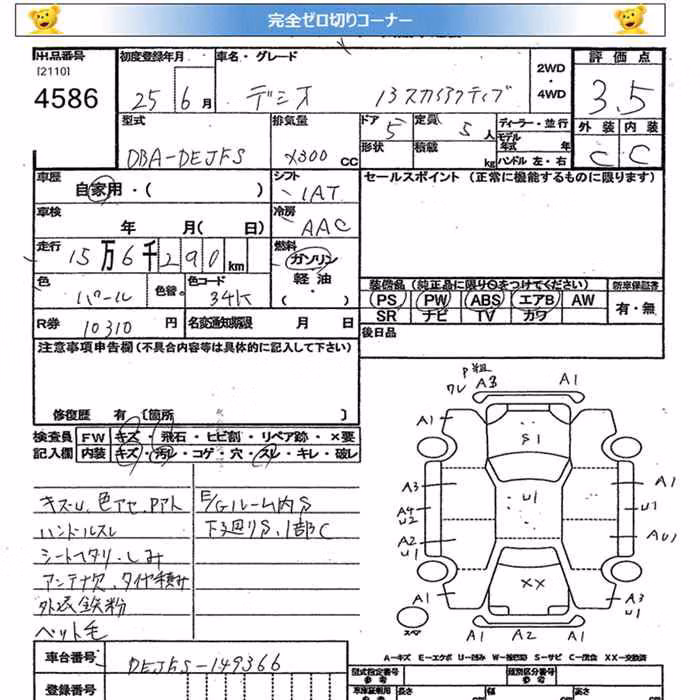 完全ゼロ切りコーナー
出品番号 初度登録年月 車名・グレード 2WD・4WD 評価点
[2110]
4586 25 6月 デミオ 13スカイアクティブ 3.5
型式 排気量 ドア 5 定員 5人 ディーラー・並行 外装 内装
DBA-DEJFS 1300cc 形状 積載 kg モデル年式 年 C C
ハンドル 左・右
車歴 シフト セールスポイント (正常に機能するものに限ります)
自家用・( ) IAT
車検 冷房
年 月( 日) AAC
走行 燃料
15万6千290km ガソリン
軽油
・( )
色 色替 色コード 装備品 (純正品に限り○をつけてください) 新車保証書
パール 34K PS PW ABS エアB AW 有・無
R券 10310円 名変通知期限 月 日 SR ナビ TV カワ
注意事項申告欄(不具合内容等は具体的に記入して下さい) 後日品
修復歴 有 [箇所 ]
検査員記入欄 FW キズ・飛石・ヒビ割・リペア跡・×要
内装 キズ・汚レ・コゲ・穴・スレ・キレ・破レ
キズ・U、色アセ、Pアト E/Gルーム内S
ハンドルスレ 下廻りS、1部C
シートヘタリ・しみ
アンテナ欠、タイヤ積み
外装鉄粉
ペット毛
車台番号 DEJFS-149366
登録番号
P粗
ワレ A3 A1
A1 S1 A1
A3 U1 A1
A4 U2 U1
A2 U1 AU1
XX
A1 A3 U1
スペア A1 A2 A1
A-キズ E-エクボ U-凹み W-補修跡 S-サビ C-腐食 XX-交換済
型式指定番号 参考 種別区分番号 参考
車庫証明用 参考 長さ 幅 高さ